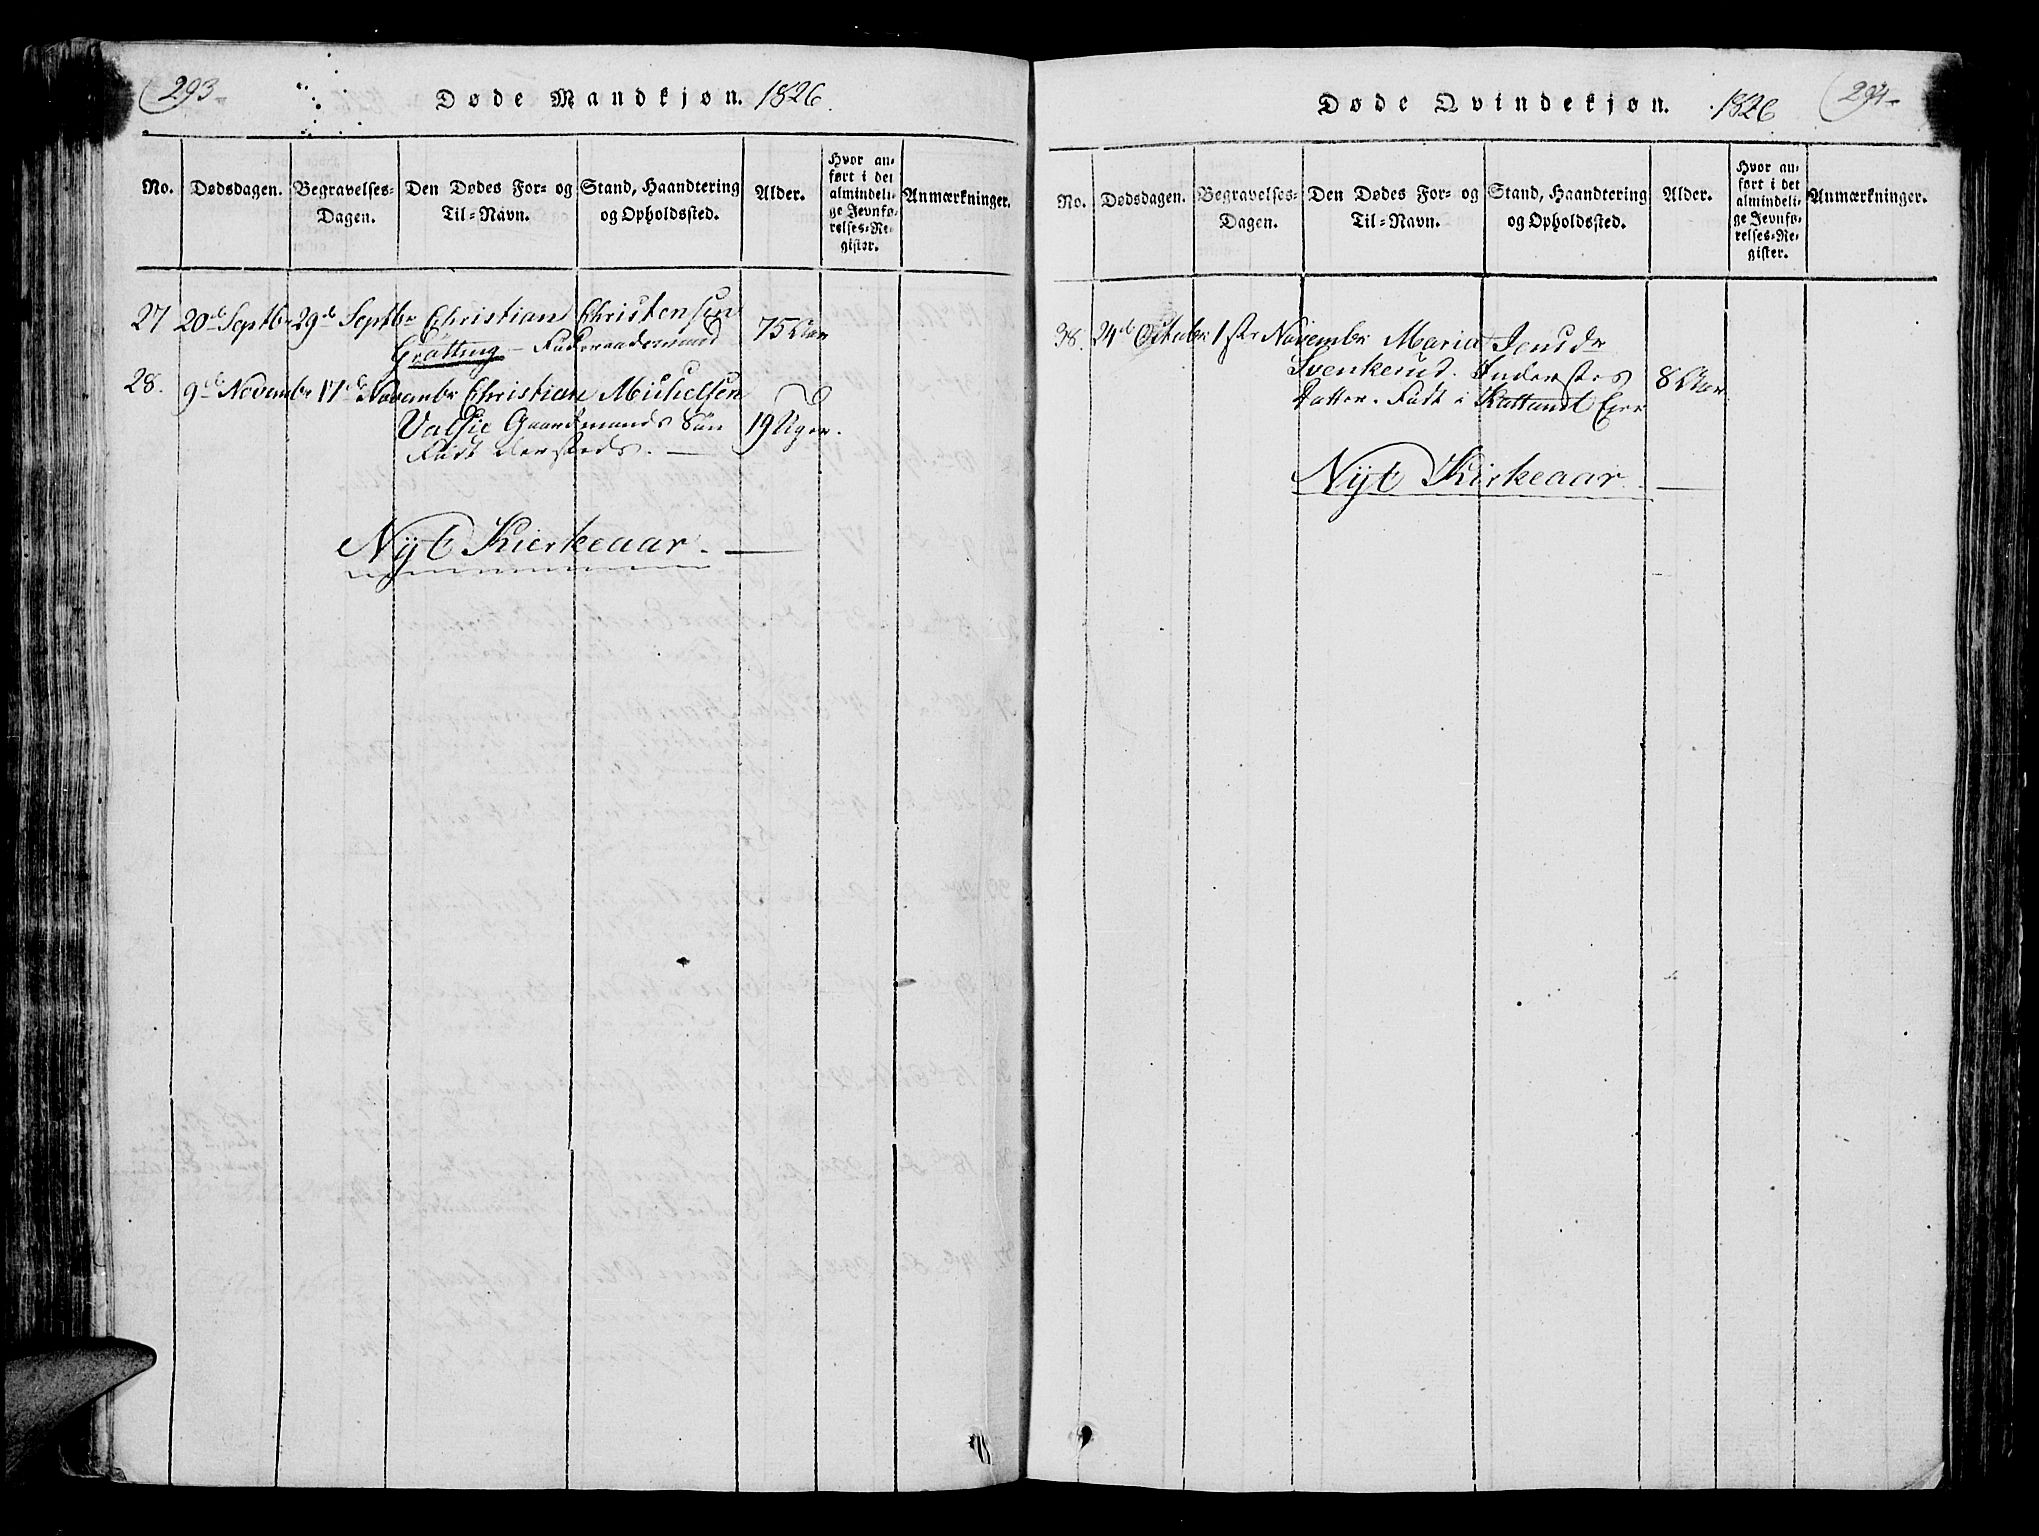 293
Døde Mandkjøn. 1826.
No. Dødsdagen. Begravelses-Dagen. Den Dødes For- og Til-Navn. Stand, Haandtering og Opholdssted. Alder. Hvor anført i det almindelige Jevnførelses-Register. Anmærkninger.
27 20de Septbr 29de Septbr Christian Christensen
Gratting - Føderaadsmand 75 Aar
28. 9de Novembr 17de Novembr Christian Michelsen
Valsie Gaardmands Søn 19 Uger.
Født dersteds.
Nyt Kierkeaar.
294
Døde Qvindekjøn. 1826
No. Dødsdagen. Begravelses-Dagen. Den Dødes For- og Til-Navn. Stand, Haandtering og Opholdssted. Alder. Hvor anført i det almindelige Jevnførelses-Register. Anmærkninger.
38. 24de Octobr 1ste Novembr Maria Jonsdr
Svenkerud. Inderstes 8 Aar.
Datter. Født i Kattund Eier
Nyt Kirkeaar